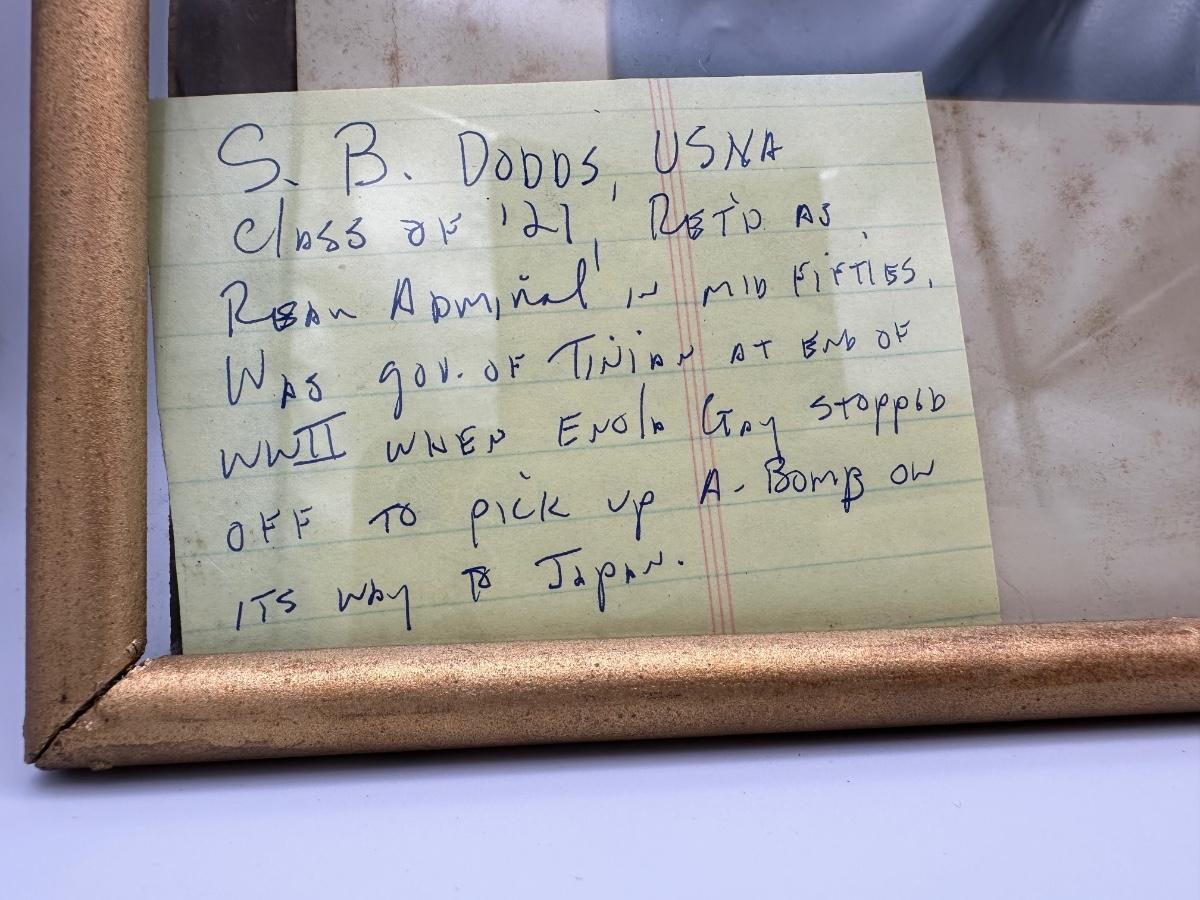 S. B. DODDS, USNA
Class OF '27, RET'D AS
REAR ADMIRAL IN MID FIFTIES.
WAS gov. OF TINIAN AT END OF
WWII WHEN ENOLA GAY STOPPED
OFF TO PICK UP A-BOMB ON
ITS WAY TO JAPAN.